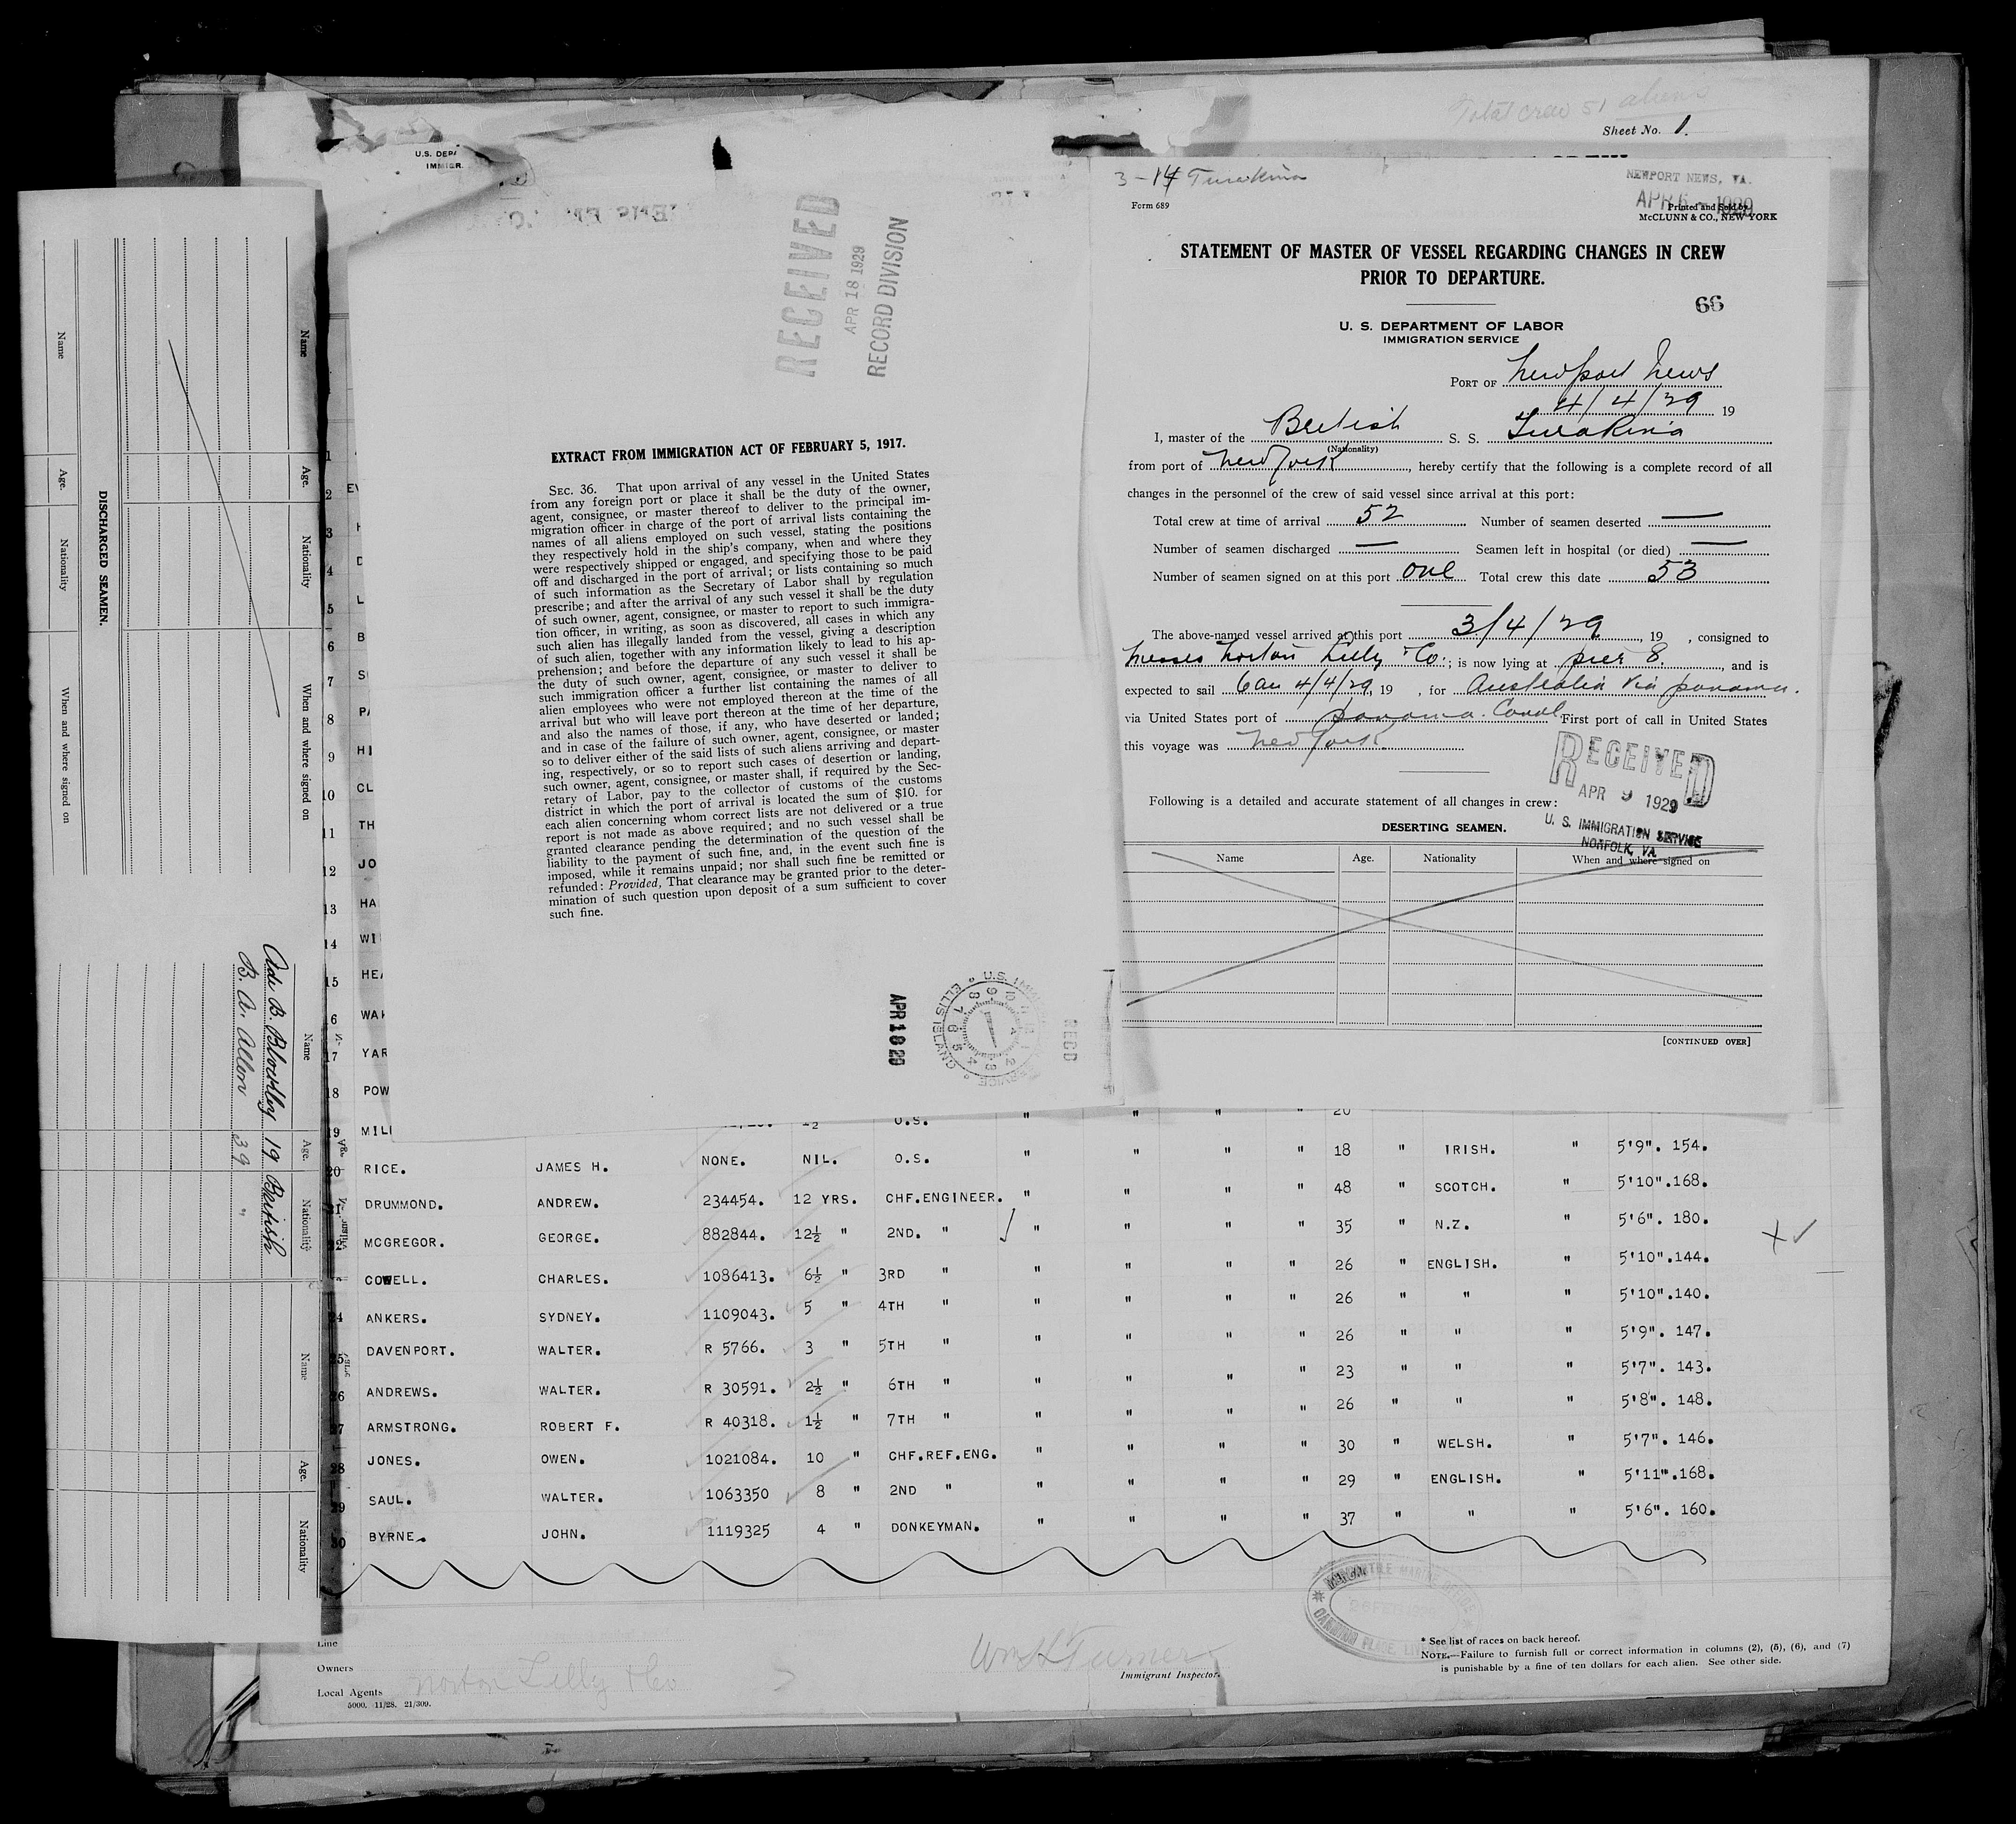 Total crew 51 aliens
Sheet No. 1.
U.S. DEPA
IMMIGR.
RECEIVED
APR 18 1929
RECORD DIVISION
EXTRACT FROM IMMIGRATION ACT OF FEBRUARY 5, 1917.
SEC. 36. That upon arrival of any vessel in the United States
from any foreign port or place it shall be the duty of the owner,
agent, consignee, or master thereof to deliver to the principal im-
migration officer in charge of the port of arrival lists containing the
names of all aliens employed on such vessel, stating the positions
they respectively hold in the ship's company, when and where they
were respectively shipped or engaged, and specifying those to be paid
off and discharged in the port of arrival; or lists containing so much
of such information as the Secretary of Labor shall by regulation
prescribe; and after the arrival of any such vessel it shall be the duty
of such owner, agent, consignee, or master to report to such immigra-
tion officer, in writing, as soon as discovered, all cases in which any
such alien has illegally landed from the vessel, giving a description
of such alien, together with any information likely to lead to his ap-
prehension; and before the departure of any such vessel it shall be
the duty of such owner, agent, consignee, or master to deliver to
such immigration officer a further list containing the names of all
alien employees who were not employed thereon at the time of the
arrival but who will leave port thereon at the time of her departure,
and also the names of those, if any, who have deserted or landed;
and in case of the failure of such owner, agent, consignee, or master
so to deliver either of the said lists of such aliens arriving and depart-
ing, respectively, or so to report such cases of desertion or landing,
such owner, agent, consignee, or master shall, if required by the Sec-
retary of Labor, pay to the collector of customs of the customs
district in which the port of arrival is located the sum of $10. for
each alien concerning whom correct lists are not delivered or a true
report is not made as above required; and no such vessel shall be
granted clearance pending the determination of the question of the
liability to the payment of such fine, and, in the event such fine is
imposed, while it remains unpaid; nor shall such fine be remitted or
refunded: Provided, That clearance may be granted prior to the deter-
mination of such question upon deposit of a sum sufficient to cover
such fine.
APR 18 29
U.S. IMM
SERVICE
ELLIS ISLAND
RECD
3-14 Turakina
NEWPORT NEWS, VA.
APR 6 - 1929
Form 689
Printed and Sold by
McCLUNN & CO., NEW YORK
STATEMENT OF MASTER OF VESSEL REGARDING CHANGES IN CREW
PRIOR TO DEPARTURE.
66
U. S. DEPARTMENT OF LABOR
IMMIGRATION SERVICE
PORT OF Newport News
4/4/29 19
I, master of the British S. S. Turakina
(Nationality)
from port of New York, hereby certify that the following is a complete record of all
changes in the personnel of the crew of said vessel since arrival at this port:
Total crew at time of arrival 52 Number of seamen deserted —
Number of seamen discharged — Seamen left in hospital (or died) —
Number of seamen signed on at this port one Total crew this date 53
The above-named vessel arrived at this port 3/4/29, 19 , consigned to
Messrs Norton Lilly & Co.; is now lying at pier 8., and is
expected to sail 6am 4/4/29, 19 , for Australia via panama.
via United States port of panama Canal. First port of call in United States
this voyage was New York
RECEIVED
APR 9 1929
U. S. IMMIGRATION SERVICE
NORFOLK, VA.
Following is a detailed and accurate statement of all changes in crew:
DESERTING SEAMEN.
Name Age. Nationality When and where signed on
[CONTINUED OVER]
DISCHARGED SEAMEN.
Name Age. Nationality When and where signed on
Name Age. Nationality When and where signed on
Name Age. Nationality Name Age. Nationality
19 British
B. A. Allen 39 "
1
2 EV
3 H
4 D
5 L
6 B
7 S
8 PA
9 HI
10 CL
11 TH
12 JO
13 HA
14 WI
15 HEA
16 WAK
17 YAR
18 POW
19 MILL O.S. " " " " 20
20 RICE. JAMES H. NONE. NIL. O.S. " " " " 18 " IRISH. " 5'9". 154.
21 DRUMMOND. ANDREW. 234454. 12 YRS. CHF.ENGINEER. " " " " 48 " SCOTCH. " 5'10".168.
22 MCGREGOR. GEORGE. 882844. 12½ " 2ND. " " " " " 35 " N.Z. " 5'6". 180.
COWELL. CHARLES. 1086413. 6½ " 3RD " " " " " 26 " ENGLISH. " 5'10".144.
24 ANKERS. SYDNEY. 1109043. 5 " 4TH " " " " " 26 " " " 5'10".140.
25 DAVENPORT. WALTER. R 5766. 3 " 5TH " " " " " 26 " " " 5'9". 147.
26 ANDREWS. WALTER. R 30591. 2½ " 6TH " " " " " 23 " " " 5'7". 143.
27 ARMSTRONG. ROBERT F. R 40318. 1½ " 7TH " " " " " 26 " " " 5'8". 148.
28 JONES. OWEN. 1021084. 10 " CHF.REF.ENG. " " " " 30 " WELSH. " 5'7". 146.
29 SAUL. WALTER. 1063350 8 " 2ND " " " " " 29 " ENGLISH. " 5'11".168.
30 BYRNE. JOHN. 1119325 4 " DONKEYMAN. " " " " 37 " " " 5'6". 160.
MERCANTILE MARINE OFFICE
Line
Owners
Local Agents Norton Lilly & Co
5000. 11/28. 21/309.
Wm H Turner
Immigrant Inspector.
* See list of races on back hereof.
NOTE.—Failure to furnish full or correct information in columns (2), (5), (6), and (7)
is punishable by a fine of ten dollars for each alien. See other side.